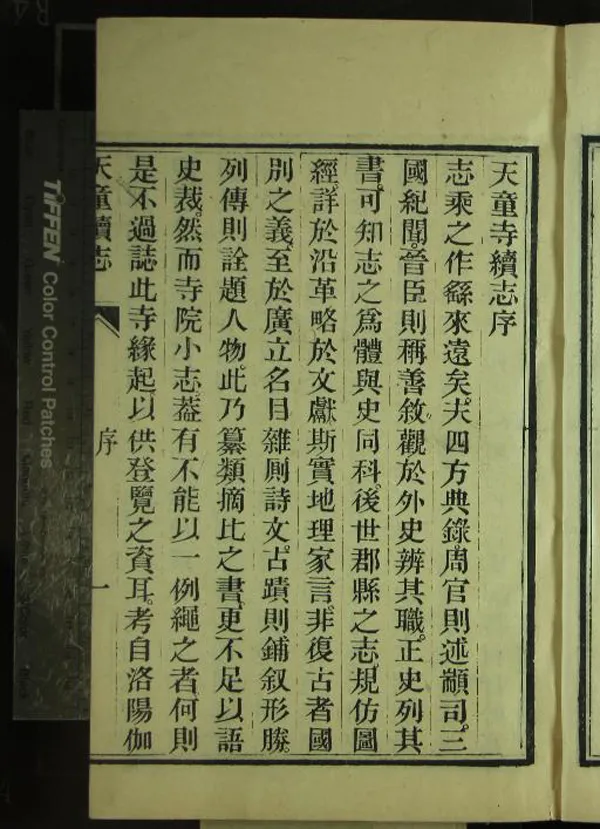 天童寺續志序
志乘之作繇來遠矣夫四方典錄周官則述顓司三
國紀聞晉臣則稱善敘觀於外史辨其職正史列其
書可知志之為體與史同科後世郡縣之志規仿圖
經詳於沿革略於文獻斯實地理家言非復古者國
別之義至於廣立名目雜厠詩文古蹟則鋪叙形勝
列傳則詮題人物此乃纂類摘比之書更不足以語
史裁然而寺院小志葢有不能以一例繩之者何則
是不過誌此寺緣起以供登覽之資耳考自洛陽伽
天童續志
序
一
TIFFEN Color Control Patches